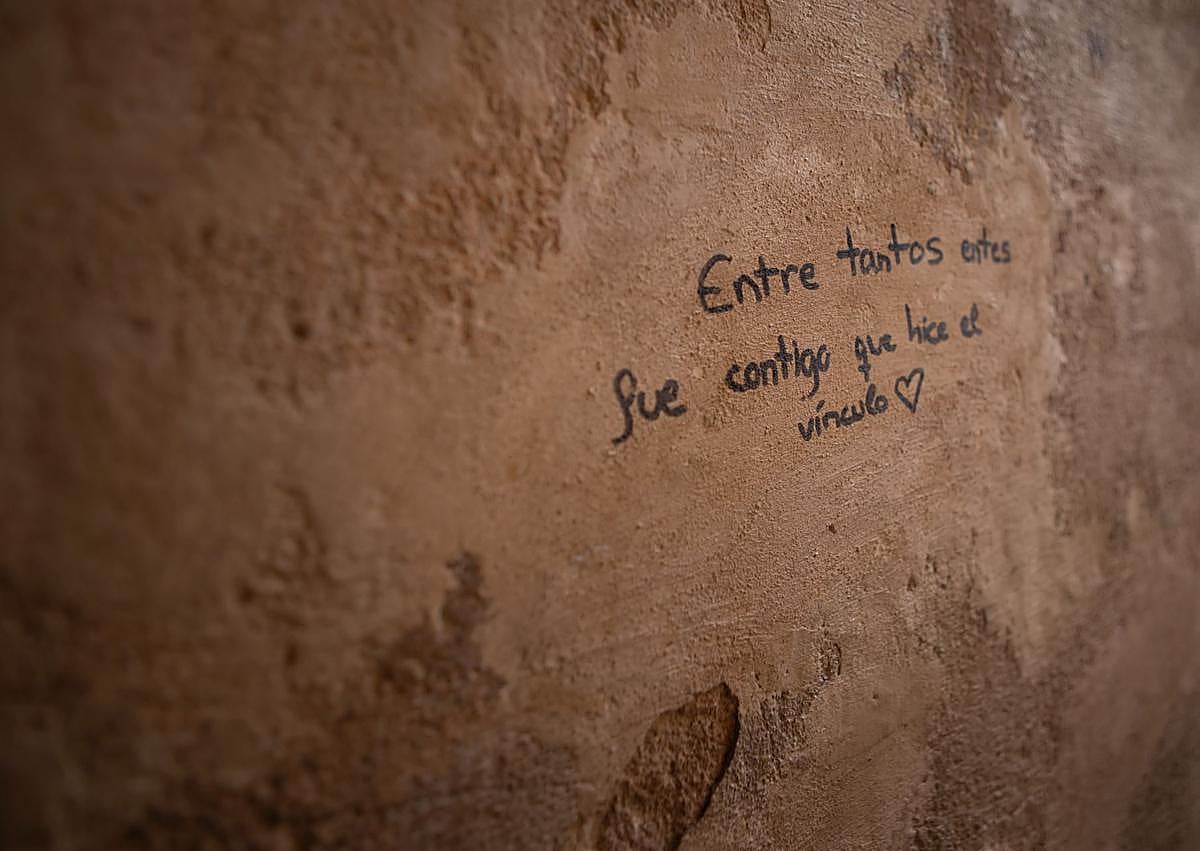 Entre tantos entes
fue contigo que hice el
vínculo ♡